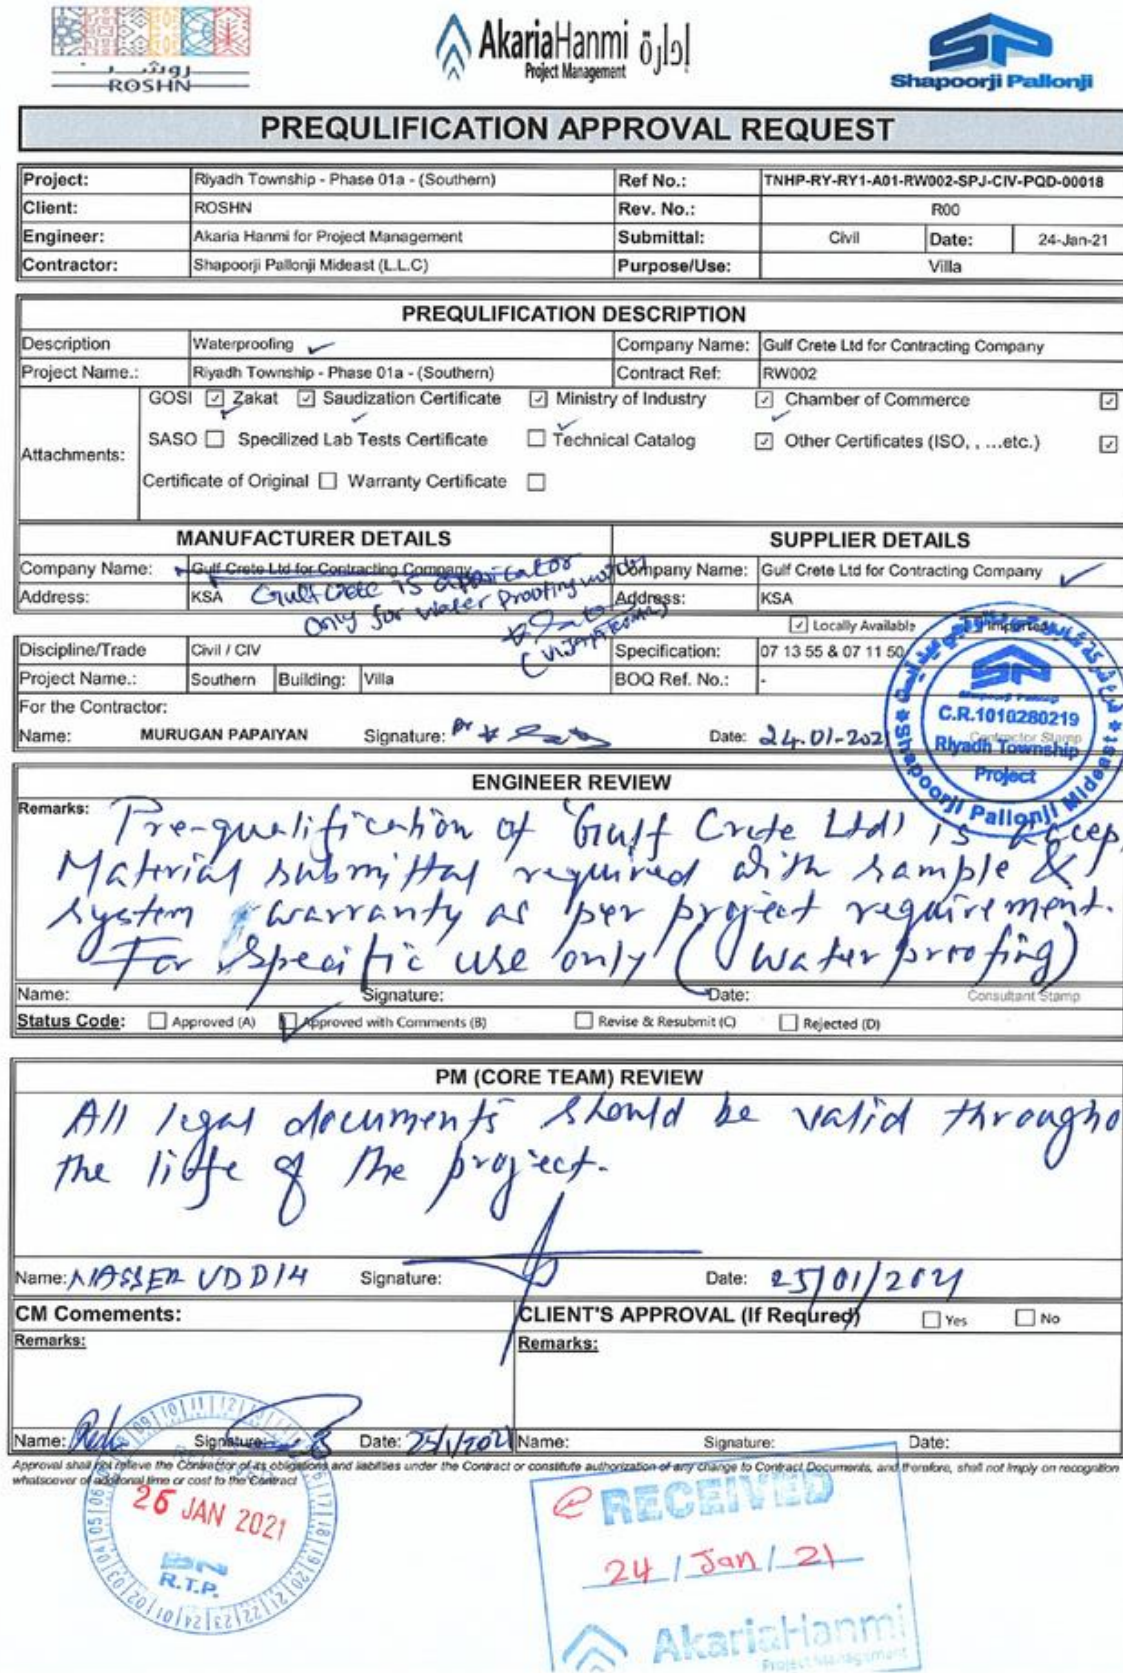 روشن
ROSHN
AkariaHanmi إدارة
Project Management
SP
Shapoorji Pallonji
PREQULIFICATION APPROVAL REQUEST
Project: Riyadh Township - Phase 01a - (Southern) Ref No.: TNHP-RY-RY1-A01-RW002-SPJ-CIV-PQD-00018
Client: ROSHN Rev. No.: R00
Engineer: Akaria Hanmi for Project Management Submittal: Civil Date: 24-Jan-21
Contractor: Shapoorji Pallonji Mideast (L.L.C) Purpose/Use: Villa
PREQULIFICATION DESCRIPTION
Description Waterproofing Company Name: Gulf Crete Ltd for Contracting Company
Project Name.: Riyadh Township - Phase 01a - (Southern) Contract Ref: RW002
GOSI Zakat Saudization Certificate Ministry of Industry Chamber of Commerce
Attachments: SASO Specilized Lab Tests Certificate Technical Catalog Other Certificates (ISO, , ...etc.)
Certificate of Original Warranty Certificate
MANUFACTURER DETAILS SUPPLIER DETAILS
Company Name: Gulf Crete Ltd for Contracting Company Company Name: Gulf Crete Ltd for Contracting Company
Address: KSA Address: KSA
Gulf Crete is applicator
only for water Proofing works
(VIJAYAKUMAR)
Locally Available Imported
Discipline/Trade Civil / CIV Specification: 07 13 55 & 07 11 50
Project Name.: Southern Building: Villa BOQ Ref. No.: -
For the Contractor:
Name: MURUGAN PAPAIYAN Signature: Date: 24.01-202
Contractor Stamp
C.R.1010280219
Riyadh Township
Project
Shapoorji Pallonji Mideast
ENGINEER REVIEW
Remarks: Pre-qualification of 'Gulf Crete Ltd' is accep
Material submittal required with sample &
system warranty as per project requirement.
For specific use only (waterproofing)
Name: Signature: Date: Consultant Stamp
Status Code: Approved (A) Approved with Comments (B) Revise & Resubmit (C) Rejected (D)
PM (CORE TEAM) REVIEW
All legal documents should be valid througho
the life of the project.
Name: NASSER UDDIN Signature: Date: 25/01/2021
CM Comements: CLIENT'S APPROVAL (If Requred) Yes No
Remarks: Remarks:
Name: Signature: Date: 25/1/2021 Name: Signature: Date:
Approval shall not relieve the Contractor of its obligations and liabilities under the Contract or constitute authorization of any change to Contract Documents, and therefore, shall not imply on recognition
whatsoever of additonal time or cost to the Contract
26 JAN 2021
R.T.P.
RECEIVED
24 / Jan / 21
AkariaHanmi
Project Management